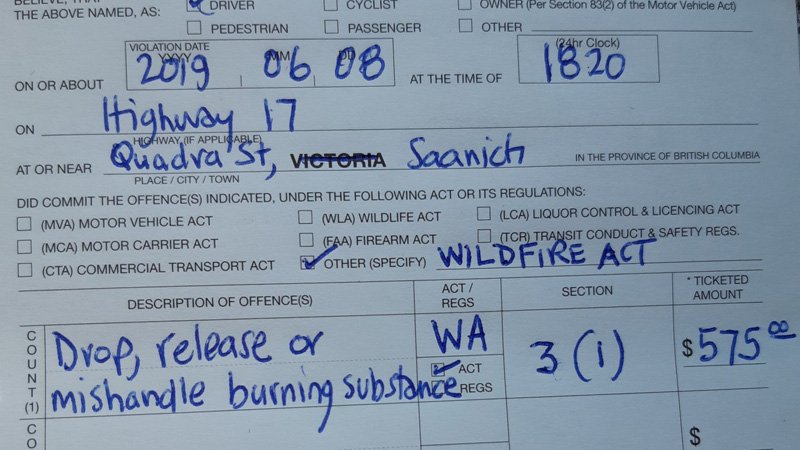 BELIEVE, THAT
THE ABOVE NAMED, AS:
DRIVER
CYCLIST
OWNER (Per Section 83(2) of the Motor Vehicle Act)
PEDESTRIAN
PASSENGER
OTHER
VIOLATION DATE
YYYY MM DD
(24hr Clock)
ON OR ABOUT 2019 06 08 AT THE TIME OF 1820
ON Highway 17
HIGHWAY (IF APPLICABLE)
AT OR NEAR Quadra St, VICTORIA Saanich IN THE PROVINCE OF BRITISH COLUMBIA
PLACE / CITY / TOWN
DID COMMIT THE OFFENCE(S) INDICATED, UNDER THE FOLLOWING ACT OR ITS REGULATIONS:
(MVA) MOTOR VEHICLE ACT
(WLA) WILDLIFE ACT
(LCA) LIQUOR CONTROL & LICENCING ACT
(MCA) MOTOR CARRIER ACT
(FAA) FIREARM ACT
(TCR) TRANSIT CONDUCT & SAFETY REGS.
(CTA) COMMERCIAL TRANSPORT ACT
OTHER (SPECIFY) WILDFIRE ACT
DESCRIPTION OF OFFENCE(S)
ACT /
REGS
SECTION
* TICKETED
AMOUNT
COUNT (1)
Drop, release or
mishandle burning substance
WA
ACT
REGS
3 (1)
$575 00
CO
$